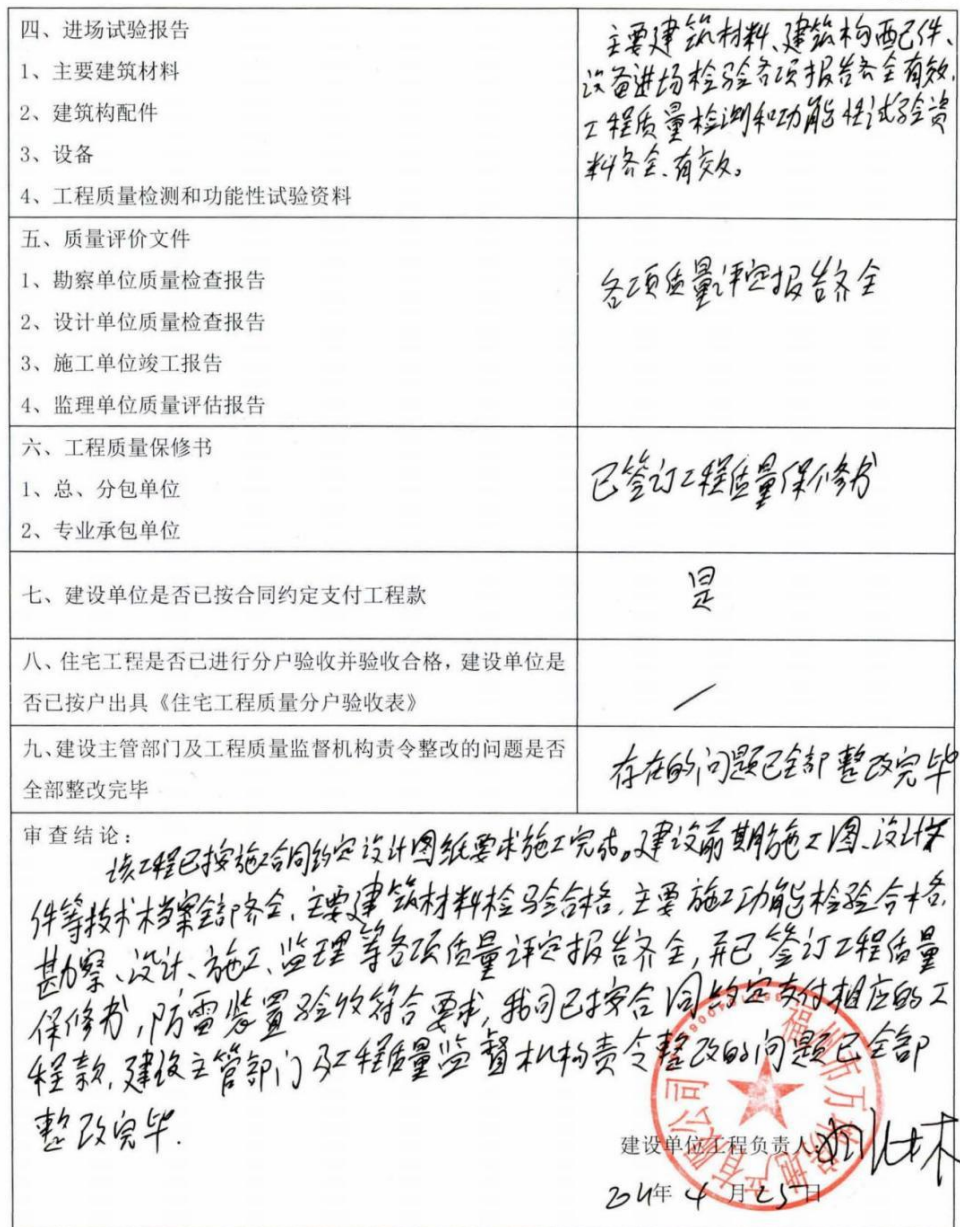 四、进场试验报告
1、主要建筑材料
2、建筑构配件
3、设备
4、工程质量检测和功能性试验资料
主要建筑材料、建筑构配件、
设备进场检验各项报告齐全有效,
工程质量检测和功能性试验资
料齐全、有效。
五、质量评价文件
1、勘察单位质量检查报告
2、设计单位质量检查报告
3、施工单位竣工报告
4、监理单位质量评估报告
各项质量评定报告齐全
六、工程质量保修书
1、总、分包单位
2、专业承包单位
已签订工程质量保修书
七、建设单位是否已按合同约定支付工程款
是
八、住宅工程是否已进行分户验收并验收合格，建设单位是
否已按户出具《住宅工程质量分户验收表》
/
九、建设主管部门及工程质量监督机构责令整改的问题是否
全部整改完毕
存在的问题已全部整改完毕
审查结论：
该工程已按施工合同约定设计图纸要求施工完成。建设前期施工图、设计文
件等技术档案全部齐全、主要建筑材料检验合格、主要施工功能检验合格、
勘察、设计、施工、监理等各项质量评定报告齐全,并已签订工程质量
保修书,防雷装置验收符合要求,我司已按合同约定支付相应的工
程款,建设主管部门及工程质量监督机构责令整改的问题已全部
整改完毕.
福州市万 地产有限公司
建设单位工程负责人：
年 4 月 25 日